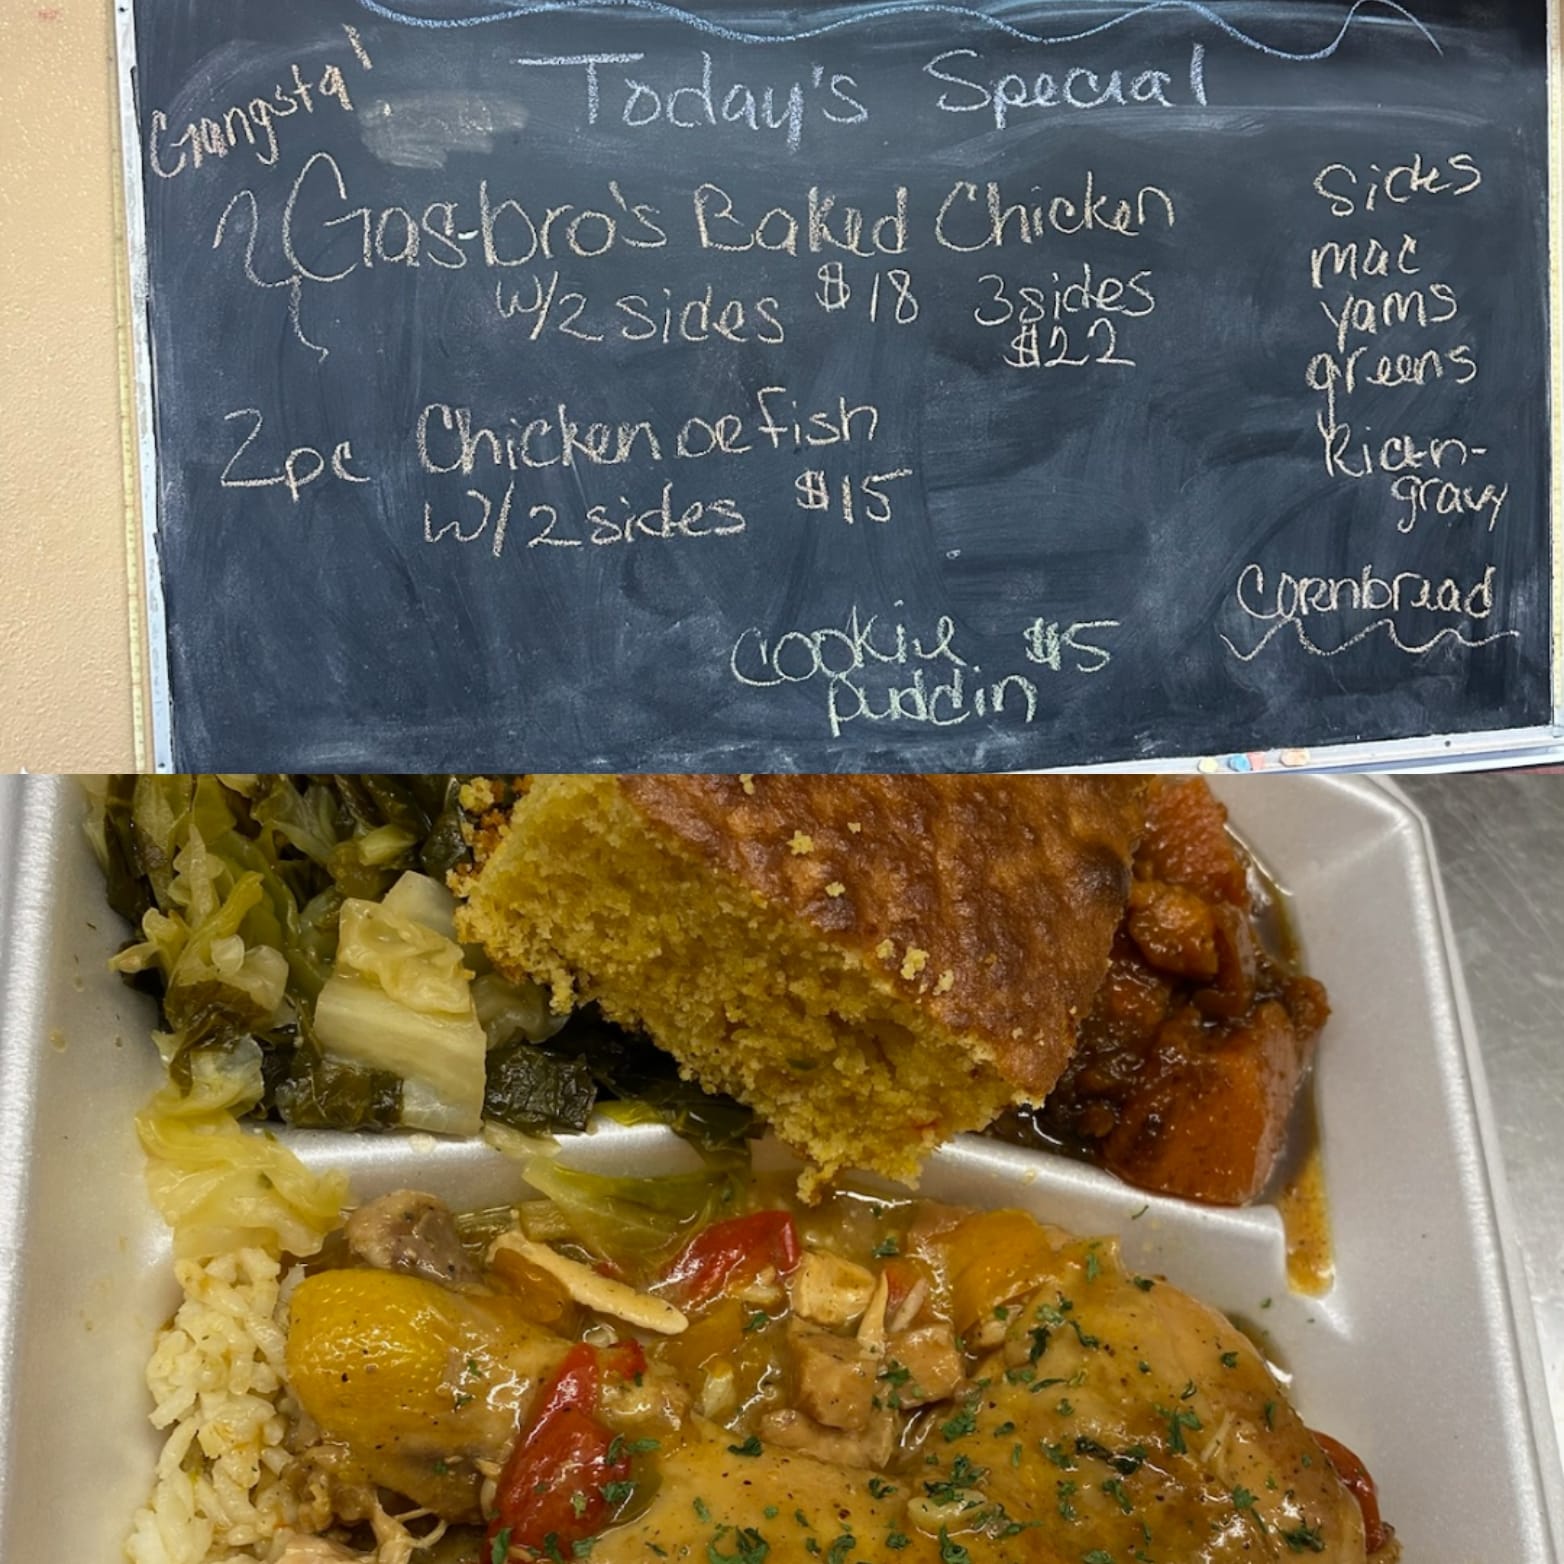 Today's Special
Gangsta!
Gas-bro's Baked Chicken
w/2 sides $18 3 sides
$22
2pc Chicken or fish
w/2 sides $15
Sides
mac
yams
greens
Rice-n-
gravy
Cornbread
Cookie $5
puddin